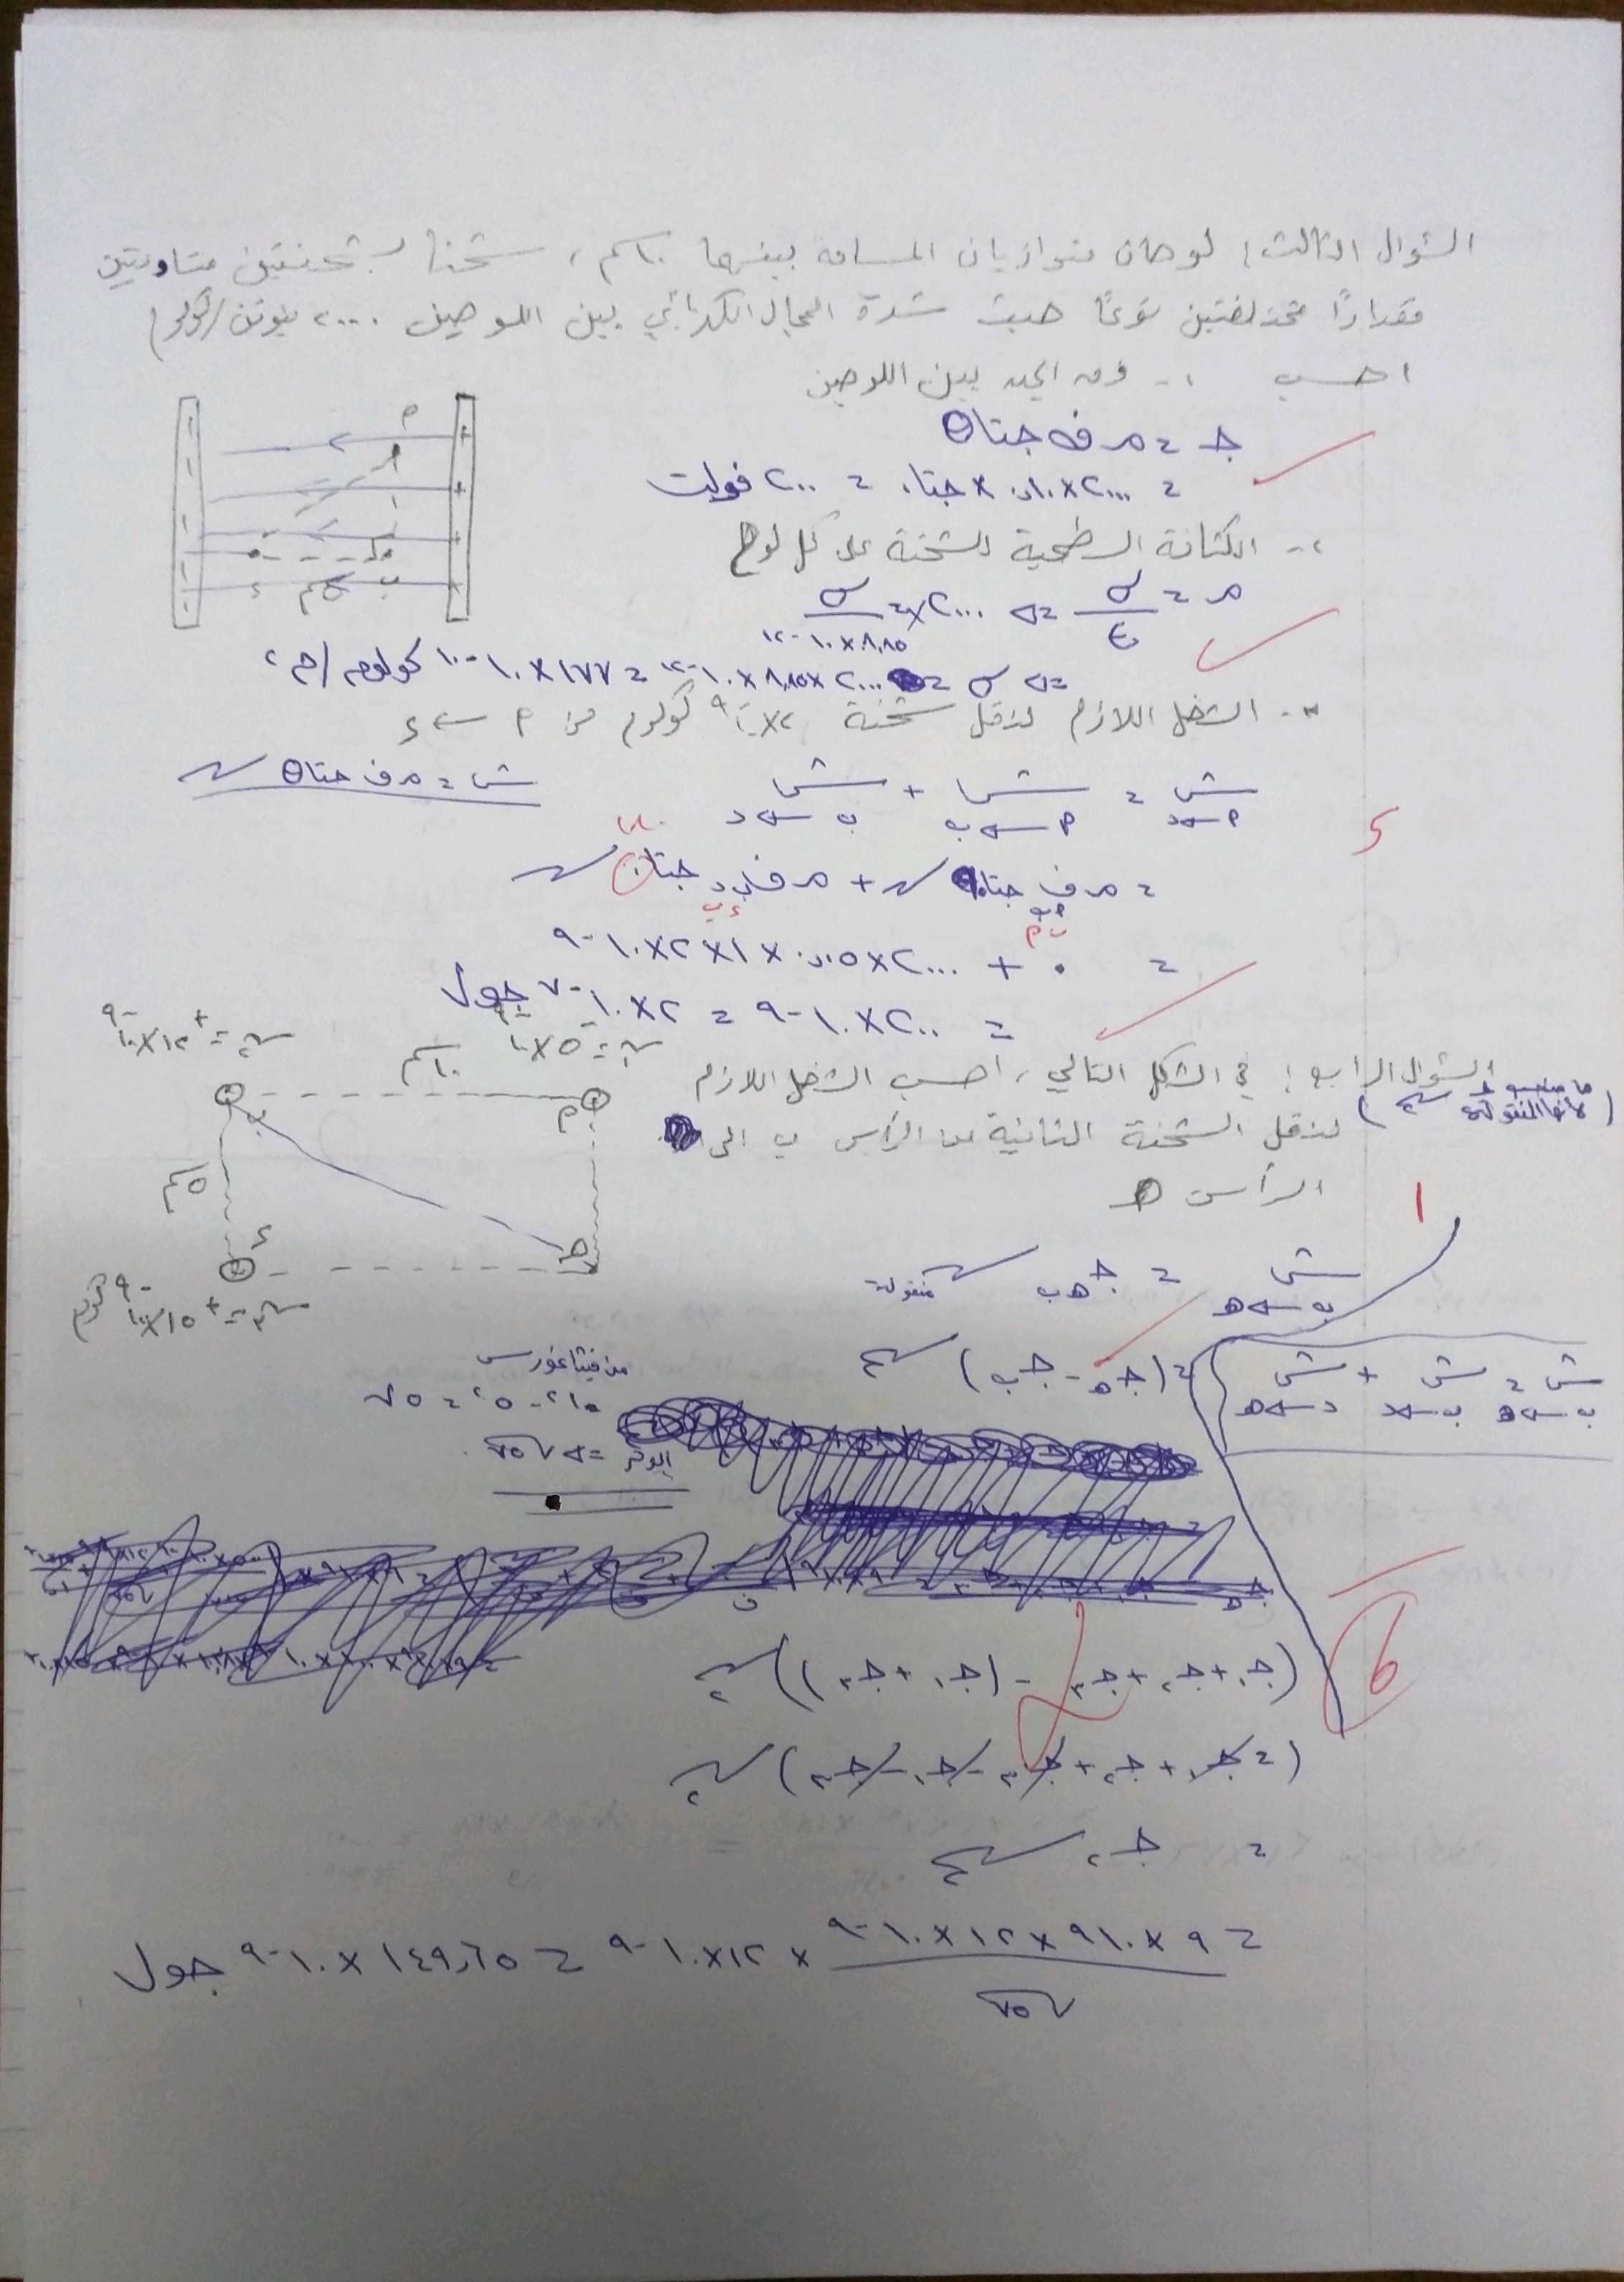 السؤال الثالث: لوحان متوازيان المسافة بينهما ١٠ سم، شحنا بشحنتين متساويتين
مقدارًا مختلفتين نوعًا حيث شدة المجال الكهربائي بين اللوحين ٢٠٠٠ نيوتن/كولوم
احسب ١- فرق الجهد بين اللوحين
جـ = مـ ف جتا θ
= ٢٠٠٠ × ٠,١ × جتا٠ = ٢٠٠ فولت
٢- الكثافة السطحية للشحنة على كل لوح
مـ = σ / ε ⇐ ٢٠٠٠ = σ / ٨,٨٥ × ١٠-١٢
⇐ σ = ٢٠٠٠ × ٨,٨٥ × ١٠-١٢ = ١٧٧ × ١٠-١٠ كولوم/م٢
٣- الشغل اللازم لنقل شحنة ٢ × ١٠-٩ كولوم من م ← ء
ش = مـ ف جتا θ س
ش م←د = ش م←ب + ش ب←د
٢
= مـ ف جتا٩٠ س + مـ ف ب د جتا٠ س
= ٠ + ٢٠٠٠ × ٠,٠٥ × ١ × ٢ × ١٠-٩
= ٢٠٠ × ١٠-٩ = ٢ × ١٠-٧ جول
السؤال الرابع: في الشكل التالي، احسب الشغل اللازم
لنقل الشحنة الثانية من الرأس ب الى
الرأس هـ
س٢ = + ١٢ × ١٠-٩
س١ = ٥ × ١٠-٩
١٠ سم
م
ب
٥ سم
ء
هـ
س٣ = + ١٥ × ١٠-٩ كولوم
١
ش ب←هـ = جـ هـ ب س منقولة
= (جـ هـ - جـ ب) س٢
ش ب←هـ = ش ب←د + ش د←هـ
من فيثاغورس
١٠٢ - ٥٢ = ٧٥
الوتر ⇐ √٧٥
(جـ١ + جـ٢ + جـ٣ - (جـ١ + جـ٣)) س٢
= (جـ١ + جـ٢ + جـ٣ - جـ١ - جـ٣) س٢
= جـ٢ س٢
= ٩ × ١٠٩ × ١٢ × ١٠-٩ / √٧٥ × ١٢ × ١٠-٩ = ١٤٩,٦٥ × ١٠-٩ جول